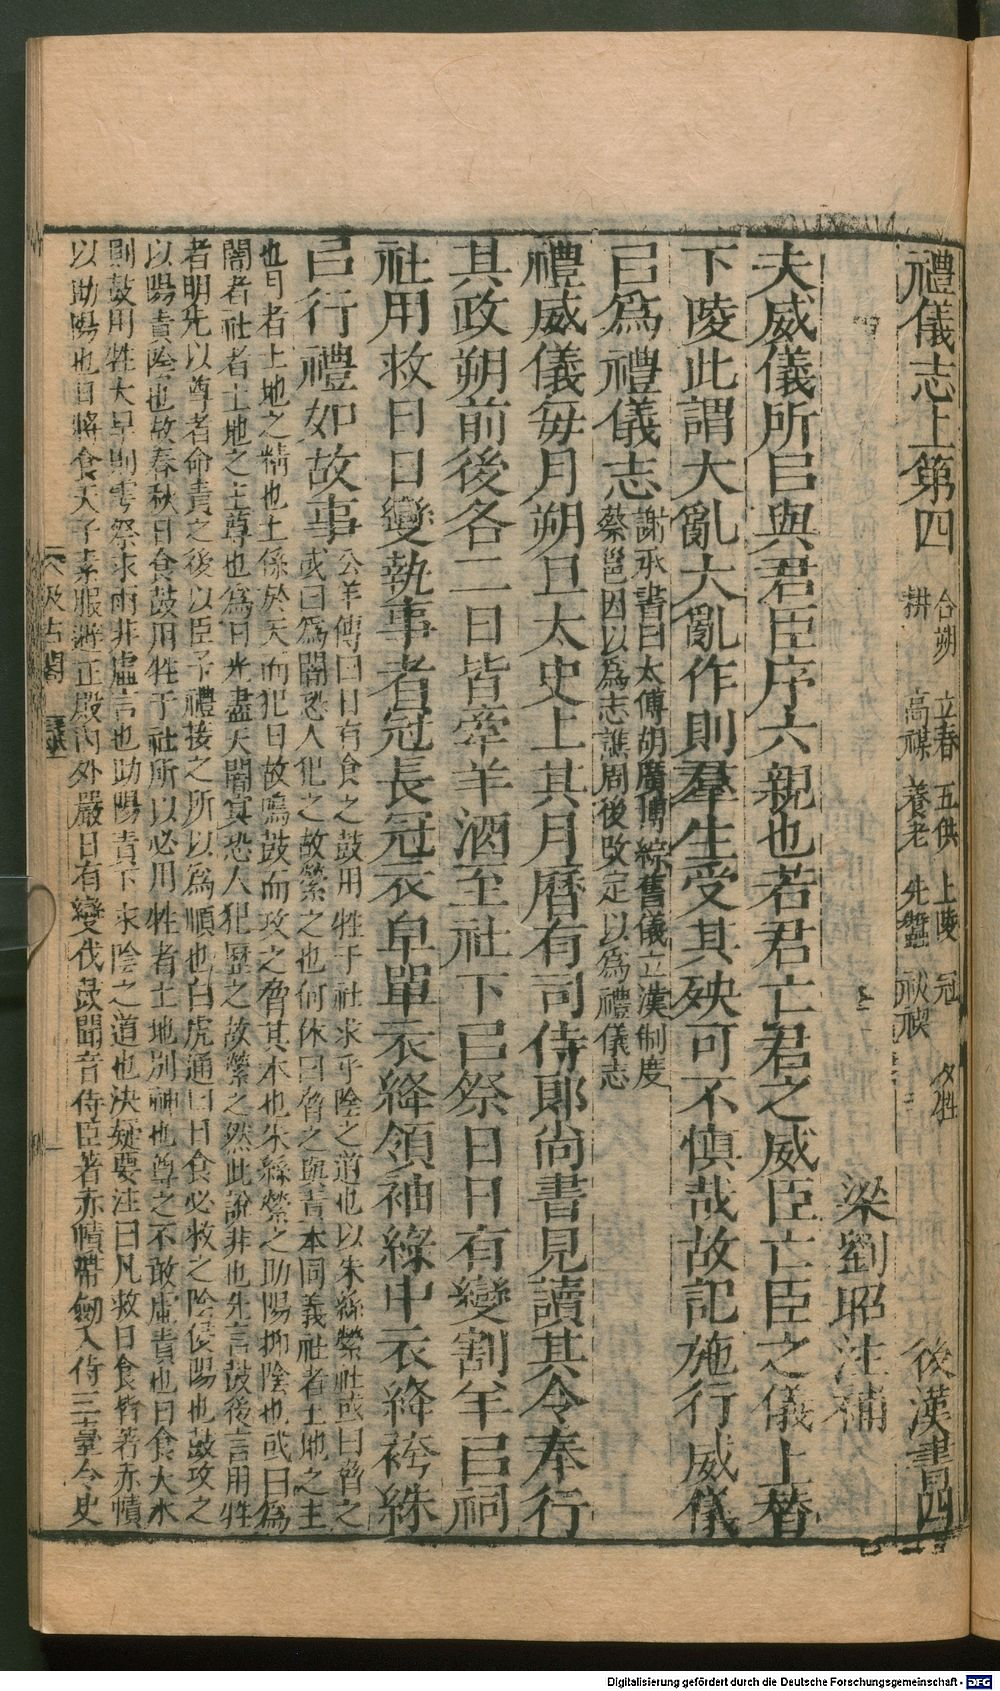 禮儀志上第四 合朔 立春 五供 上陵 冠 夕牲 耕 高禖 養老 先蠶 祓禊 後漢書四
梁劉昭注補
夫威儀所㠯與君臣序六親也若君亡君之威臣亡臣之儀上替
下陵此謂大亂大亂作則羣生受其殃可不慎哉故記施行威儀
㠯爲禮儀志 謝承書曰太傅胡廣博綜舊儀立漢制度
蔡邕因以爲志譙周後改定以爲禮儀志
禮威儀每月朔旦太史上其月曆有司侍郎尚書見讀其令奉行
其政朔前後各二日皆牽羊酒至社下㠯祭日日有變割羊㠯祠
社用救日日變執事者冠長冠衣皁單衣絳領袖緣中衣絳袴絑
㠯行禮如故事 公羊傳曰日有食之鼓用牲于社求乎陰之道也以朱絲縈社或曰脅之
或曰爲闇恐人犯之故縈之也何休曰脅之與責本同義社者土地之主
也月者土地之精也上係於天而犯日故鳴鼓而攻之脅其本也朱絲縈之助陽抑陰也或曰爲
闇者社者土地之主尊也爲日光盡天闇冥恐人犯歷之故縈之然此說非也先言鼓後言用牲
者明先以尊者命責之後以臣子禮接之所以爲順也白虎通曰日食必救之陰侵陽也鼓攻之
以陽責陰也故春秋日食鼓用牲于社所以必用牲者土地別神也尊之不敢虛責也日食大水
則鼓用牲大旱則雩祭求雨非虛言也助陽責下求陰之道也決疑要注曰凡救日食皆著赤幘
以助陽也日將食天子素服避正殿內外嚴日有變伐鼓聞音侍臣著赤幘帶劒入侍三臺令史
汲古閣
Digitalisierung gefördert durch die Deutsche Forschungsgemeinschaft - DFG